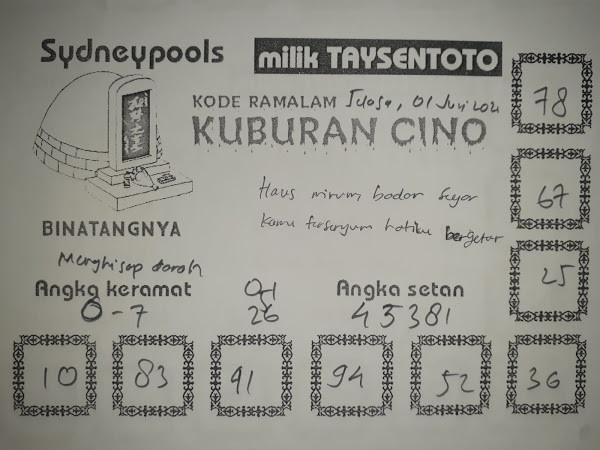 Sydneypools
milik TAYSENTOTO
KODE RAMALAM Selasa, 01 Juni 2021
KUBURAN CINO
78
67
25
Haus minum bodor segar
Kamu tersenyum hatiku bergetar
BINATANGNYA
Menghisap darah
Angka keramat
0-7
01
26
Angka setan
45381
10
83
91
94
52
36